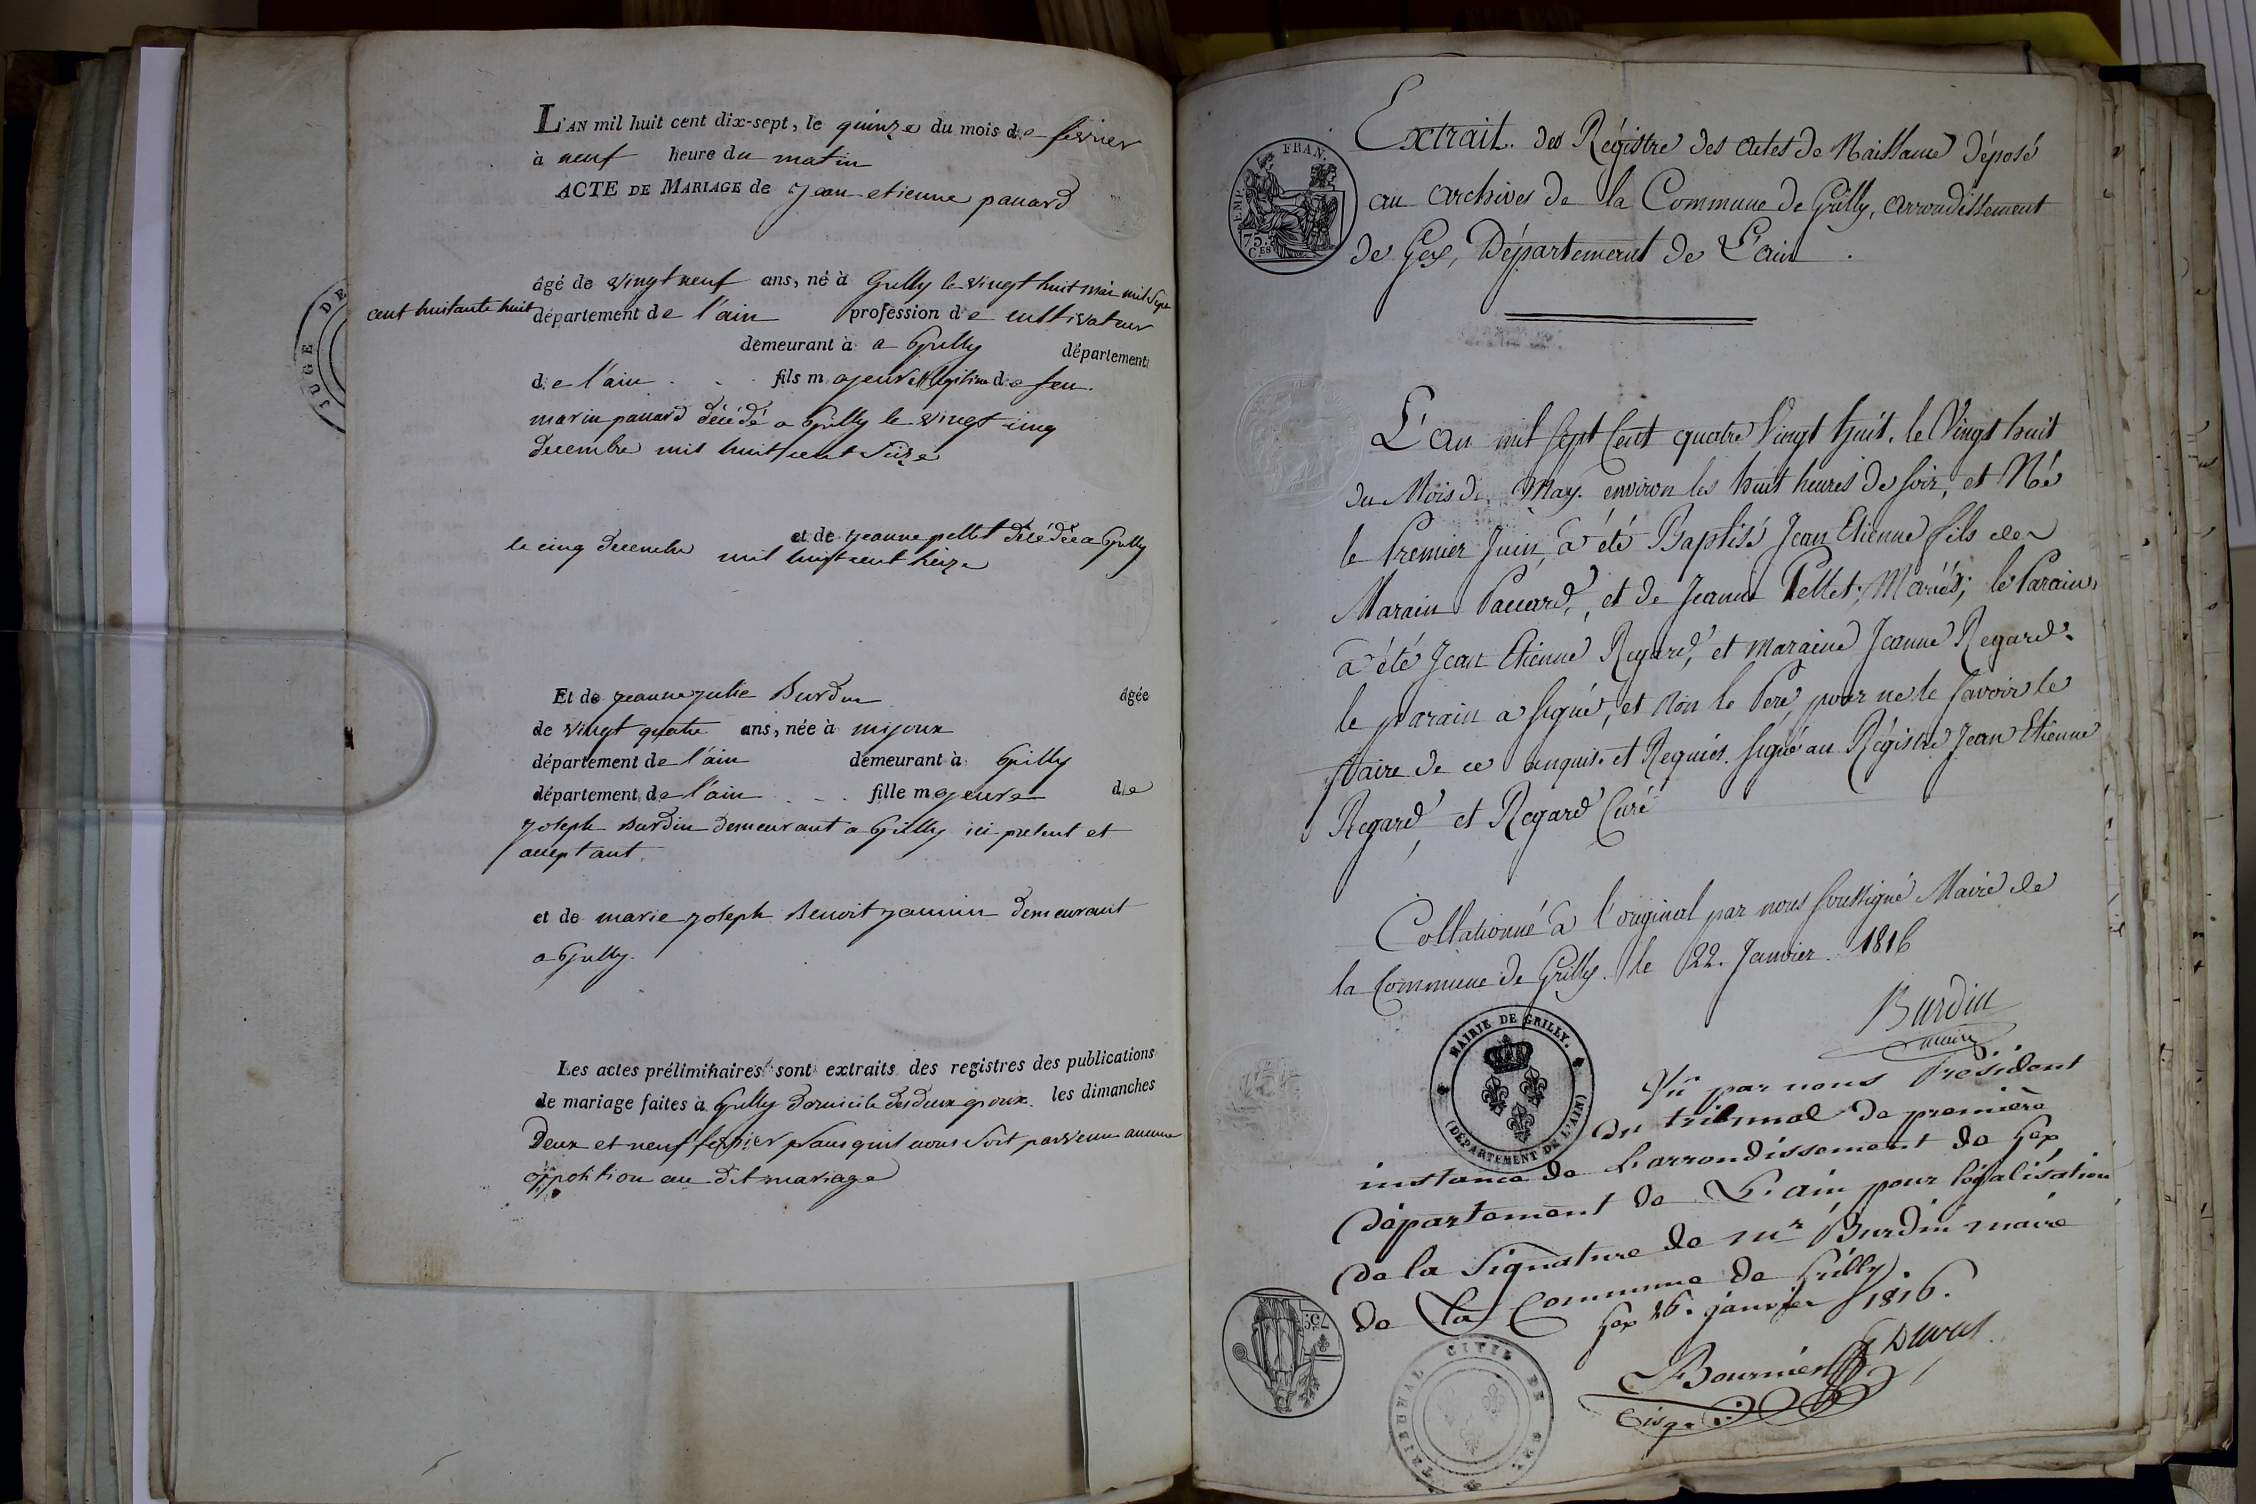 L'AN mil huit cent dix-sept, le quinze du mois de fevrier
à neuf heure du matin
ACTE DE MARIAGE de jean etienne paccard
âgé de vingt neuf ans, né à Grilly le vingt huit mai mil sept
cent huitante huit département de l'ain profession de cultivateur
demeurant à a Grilly département
de l'ain fils majeur et legitime de feu
marin paccard décédé a Grilly le vingt cinq
decembre mil huit cent seize
et de jeanne pellet décédée a Grilly
le cinq decembre mil huit cent treize
Et de jeanne julie Burdin âgée
de vingt quatre ans, née à mijoux
département de l'ain demeurant à Grilly
département de l'ain fille majeure de
joseph Burdin demeurant a Grilly ici present et
acceptant.
et de marie joseph Benoit jannin demeurant
a Grilly.
Les actes préliminaires sont extraits des registres des publications
de mariage faites à Grilly domicile des deux epoux. les dimanches
Deux et neuf fevrier sans quil nous soit parvenu aucune
opposition au dit mariage
JUGE DE
Extrait des Régistre des actes de Naissance déposé
au archives de la Commune de Grilly, arrondissement
de Gex, Département de L'ain.
EMP. FRAN.
75 CES
L'an mil sept Cent quatre Vingt huit, le Vingt huit
du Mois de May environ les huit heures de soir, et Né
le Premier Juin, a été Baptisé Jean Etienne fils de
Marain Paccard, et de Jeanne Pellet, Mariés; le Parain
a été Jean Etienne Regard, et maraine Jeanne Regard.
le parain a signé, et Non le Pere, pour ne le savoir le
faire de ce enquis et Requis. signé au Régistre Jean Etienne
Regard, et Regard Curé
Collationné à l'original par nous soussigné Maire de
la Commune de Grilly. le 22. Janvier 1816
Burdin
maire
MAIRIE DE GRILLY.
(DÉPARTEMENT DE L'AIN)
Vû par nous Président
du tribunal de première
instance de L'arrondissement de Gex
département de L'ain pour légalisation
de la signature de Mr Burdin maire
de la Commune de Grilly.
Gex 26. janvier 1816.
Bournier
TRIBUNAL CIVIL DE GEX